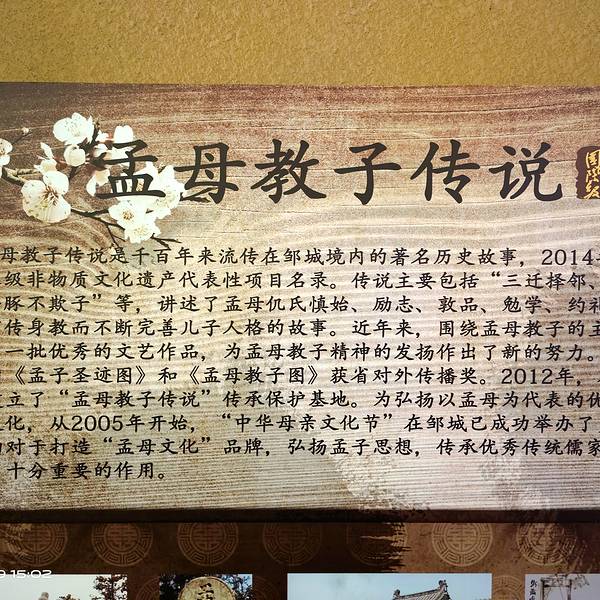 孟母教子传说
国家级
母教子传说是千百年来流传在邹城境内的著名历史故事，2014年
级非物质文化遗产代表性项目名录。传说主要包括“三迁择邻、
豚不欺子”等，讲述了孟母仉氏慎始、励志、敦品、勉学、约礼
传身教而不断完善儿子人格的故事。近年来，围绕孟母教子的
一批优秀的文艺作品，为孟母教子精神的发扬作出了新的努力。
《孟子圣迹图》和《孟母教子图》获省对外传播奖。2012年，
立了“孟母教子传说”传承保护基地。为弘扬以孟母为代表的优
化，从2005年开始，“中华母亲文化节”在邹城已成功举办了
对于打造“孟母文化”品牌，弘扬孟子思想，传承优秀传统儒家
十分重要的作用。
15:02